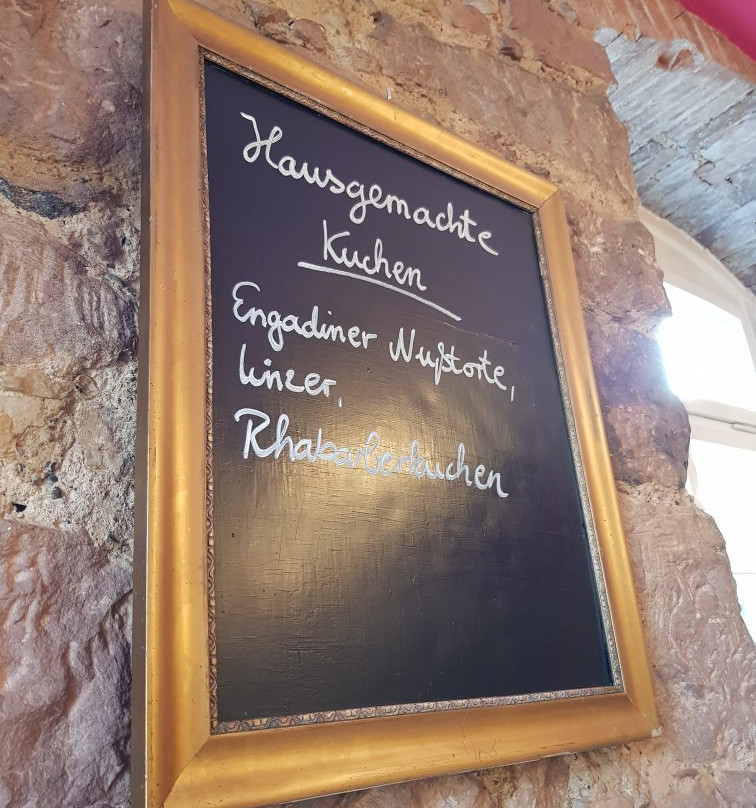 Hausgemachte
Kuchen
Engadiner Nußtorte,
linzer,
Rhabarberkuchen